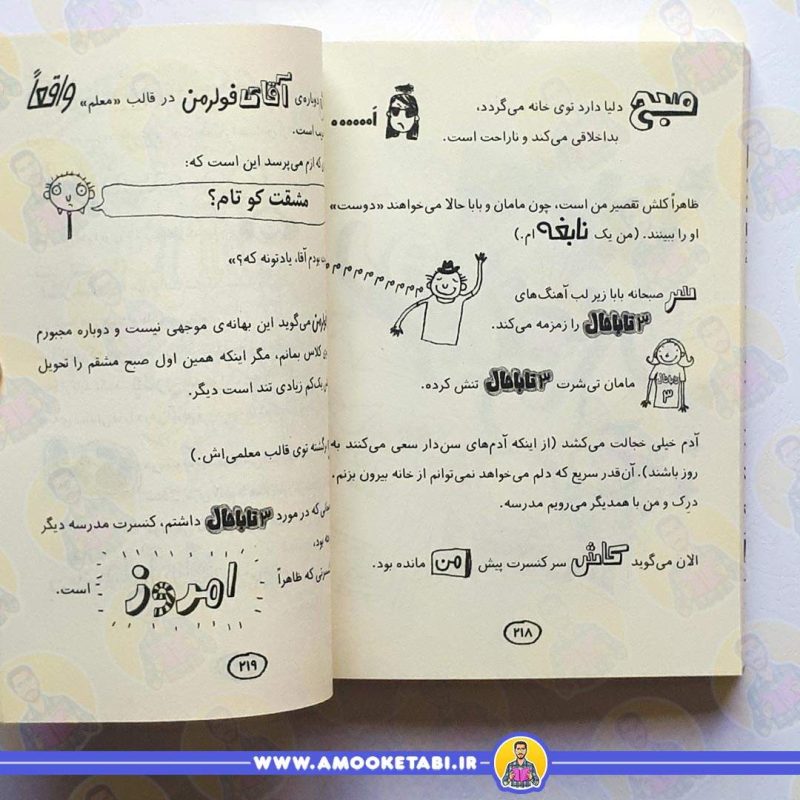 صبح دلیا دارد توی خانه می‌گردد،
بداخلاقی می‌کند و ناراحت است.
اَ......
ظاهراً کلش تقصیر من است، چون مامان و بابا حالا می‌خواهند «دوست»
او را ببینند. (من یک نابغه ام.)
سر صبحانه بابا زیر لب آهنگ‌های
۳ تا باحال را زمزمه می‌کند.
مامان تی‌شرت ۳ تا باحال تنش کرده.
۳ تا باحال
آدم خیلی خجالت می‌کشد (از اینکه آدم‌های سن‌دار سعی می‌کنند به
روز باشند). آن‌قدر سریع که دلم می‌خواهد نمی‌توانم از خانه بیرون بزنم.
درِک و من با همدیگر می‌رویم مدرسه.
الان می‌گوید کاش سر کنسرت پیش من مانده بود.
۲۱۸
درباره‌ی آقای فولرمن در قالب «معلم» واقعاً
است.
که ازم می‌پرسد این است که:
مشقت کو تام؟
بودم آقا، یادتونه که؟»
می‌گوید این بهانه‌ی موجهی نیست و دوباره مجبورم
کلاس بمانم، مگر اینکه همین اول صبح مشقم را تحویل
یک‌کم زیادی تند است دیگر.
توی قالب معلمی‌اش.)
که در مورد ۳ تا باحال داشتم، کنسرت مدرسه دیگر
بود.
که ظاهراً امروز است.
۲۱۹
WWW.AMOOKETABI.IR